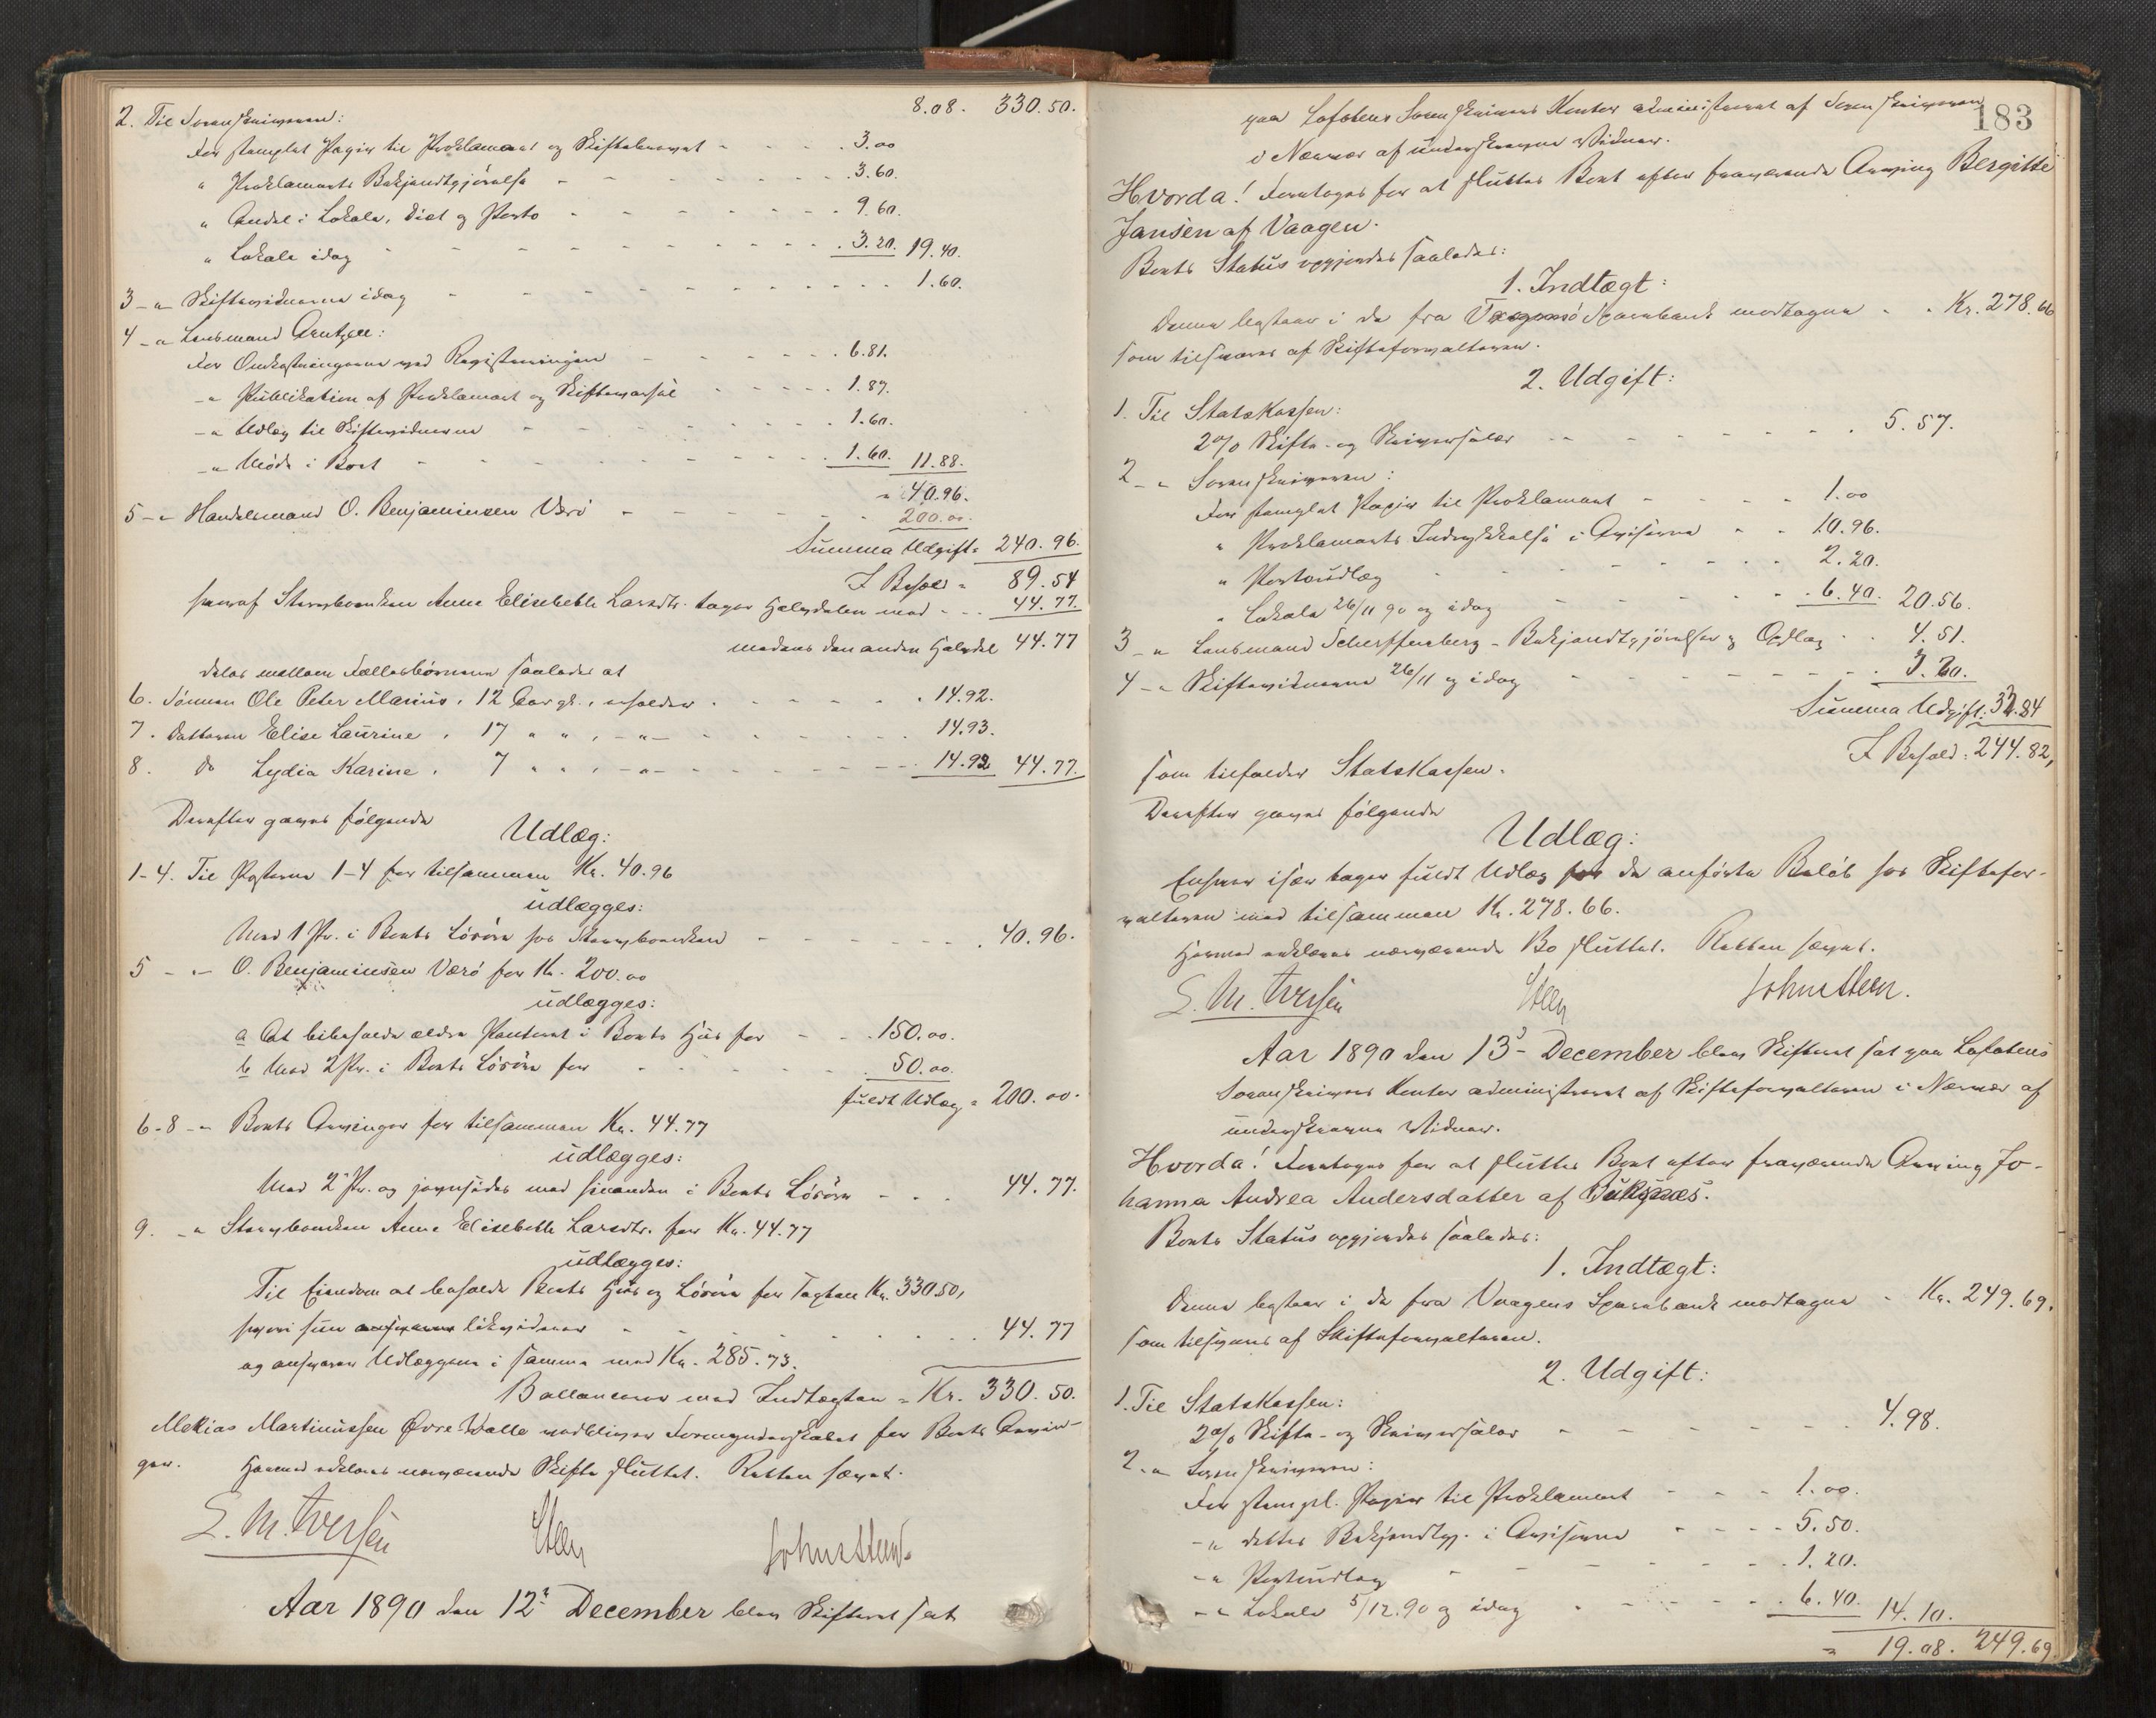 8.08. 330.50.
2. Til Sorenskriveren:
For stemplet Papir til Proklamaet og Skiftebrevet - 3.00
" Proklamaets Bekjendtgjørelse - 3.60.
" Andel i Lokale, Diæt og Porto - 9.60.
" Lokale idag - 3.20. 19.40.
3 -"- Skiftevidnerne idag - 1.60.
4 -"- Lensmand Arntzen:
For Omkostningerne ved Registreringen - 6.81.
-"- Publikation af Proklamaet og Skiftevarsel - 1.87.
-"- Udlæg til Skiftevidnerne - 1.60.
-"- Møde i Boet - 1.60. 11.88.
= 40.96.
5 -"- Handelsmand O. Benjaminsen Værø - 200.00.
Summa Udgift = 240.96.
I Behold = 89.54
hvoraf Stervboenken Anne Elisebeth Larsdtr. tager Halvdelen med - 44.77.
medens den anden Halvdel 44.77
deles mellem Fællesbørnene saaledes at
6. Sønnen Ole Peter Marius, 12 Aar gl., erholder - 14.92.
7. Datteren Elise Laurine, 17 " " , -"- 14.93.
8. do Lydia Karine, 7 " " , -"- 14.92 44.77.
Derefter gaves følgende
Udlæg:
1-4. Til Posterne 1-4 for tilsammen Kr. 40.96
udlægges:
Med 1 Pr. i Boets Løsøre hos Stervboenken - 40.96.
5 -"- O. Benjaminsen Værø for Kr. 200.00
udlægges:
a At bibeholde ældre Panteret i Boets Hus for - 150.00.
b Med 2 Pr. i Boets Løsøre for - 50.00.
fuldt Udlæg = 200.00.
6-8 -"- Boets Arvinger for tilsammen Kr. 44.77
udlægges:
Med 2den Pr. og jevnsides med hinanden i Boets Løsøre - 44.77.
9. -"- Stervboenken Anne Elisebeth Larsdtr. for Kr. 44.77
udlægges:
Til Eiendom at beholde Boets Hus og Løsøre for Taxten Kr. 330.50,
hvori hun likviderer - 44.77
og ansvarer Udlæggene i samme med Kr. 285.73.
Ballancerer med Indtægten = Kr. 330.50.
Mekias Martinussen Øvre Valle vedbliver Formynderskabet for Boets Arvin-
ger. Hermed erklæres nærværende Skifte sluttet. Retten hævet.
E. M. Iversen Steen Johns Steen.
Aar 1890 den 12te December blev Skifteret sat
183
paa Lofotens Sorenskrivers Kontor administreret af Sorenskriveren
i Nærvær af underskrevne Vidner.
Hvorda! Foretoges for at sluttes Boet efter fraværende Arving Bergitte
Jansen af Vaagen.
Boets Status opgjordes saaledes:
1. Indtægt:
Denne bestaar i de fra Sparebank modtagne - Kr. 278.66
som tilsvares af Skifteforvalteren.
2. Udgift:
1. Til Statskassen:
2% Skifte- og Skriversalær - 5.57.
2 -"- Sorenskriveren:
For stemplet Papir til Proklamaet - 1.00
" Proklamaets Indrykkelse i Aviserne - 10.96.
" Portoudlæg - 2.20.
" Lokale 26/11 90 og idag - 6.40. 20.56.
3 -"- Lensmand Scherffenberg - Bekjendtgjørelse & Opslag - 4.51.
4 -"- Skiftevidnerne 26/11 og idag - 3.20.
Summa Udgift: 33.84
I Behold: 244.82,
som tilfalder Statskassen.
Derefter gaves følgende
Udlæg:
Enhver især tager fuldt Udlæg for de anførte Beløb hos Skiftefor-
valteren med tilsammen Kr. 278.66.
Hermed erklæres nærværende Bo sluttet. Retten hævet.
E. M. Iversen Steen Johns Steen.
Aar 1890 den 13de December blev Skifteret sat paa Lofotens
Sorenskrivers Kontor administreret af Skifteforvalteren i Nærvær af
underskrevne Vidner.
Hvorda! Foretoges for at sluttes Boet efter fraværende Arving Jo-
hanna Andrea Andersdatter af Buksnes.
Boets Status opgjordes saaledes:
1. Indtægt:
Denne bestaar i de fra Vaagens Sparebank modtagne - Kr. 249.69.
som tilsvares af Skifteforvalteren.
2. Udgift:
1. Til Statskassen:
2% Skifte- og Skriversalær - 4.98.
2. -"- Sorenskriveren:
For stempl. Papir til Proklamaet - 1.00.
-"- dettes Bekjendtgj. i Aviserne - 5.50.
-"- Portoudlæg - 1.20.
-"- Lokale 5/12.90 og idag - 6.40. 14.10.
= 19.08. 249.69